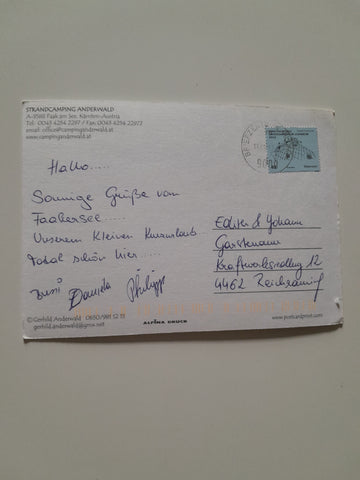 STRANDCAMPING ANDERWALD
A-9583 Faak am See, Kärnten-Austria
Tel: 0043 4254 2297 / Fax: 0043 4254 22977
email: office@campinganderwald.at
www.campinganderwald.at
Hallo.....
Sonnige Grüße vom
Faakersee.....
Unserem kleinen Kurzurlaub
Total schön hier....
Bussi Daniela Philipp
Edith & Johann
Garstenauer
Kraftwerkssiedlung 12
4462 Reichraming
© Gerhild Anderwald 0650/981 12 13
gerhild.anderwald@gmx.net
ALPINA DRUCK
www.postcardprint.com